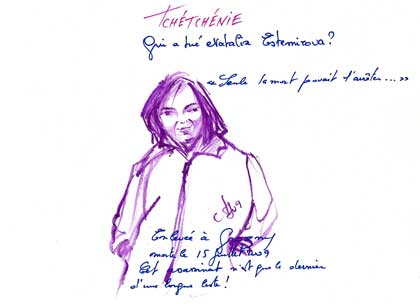 TCHÉTCHÉNIE
Qui a tué Natalia Estemirova?
« Seule la mort pouvait l'arrêter... »
Enlevée à Grozny
morte le 15 juillet 2009
Cet assassinat n'est que le dernier
d'une longue liste !